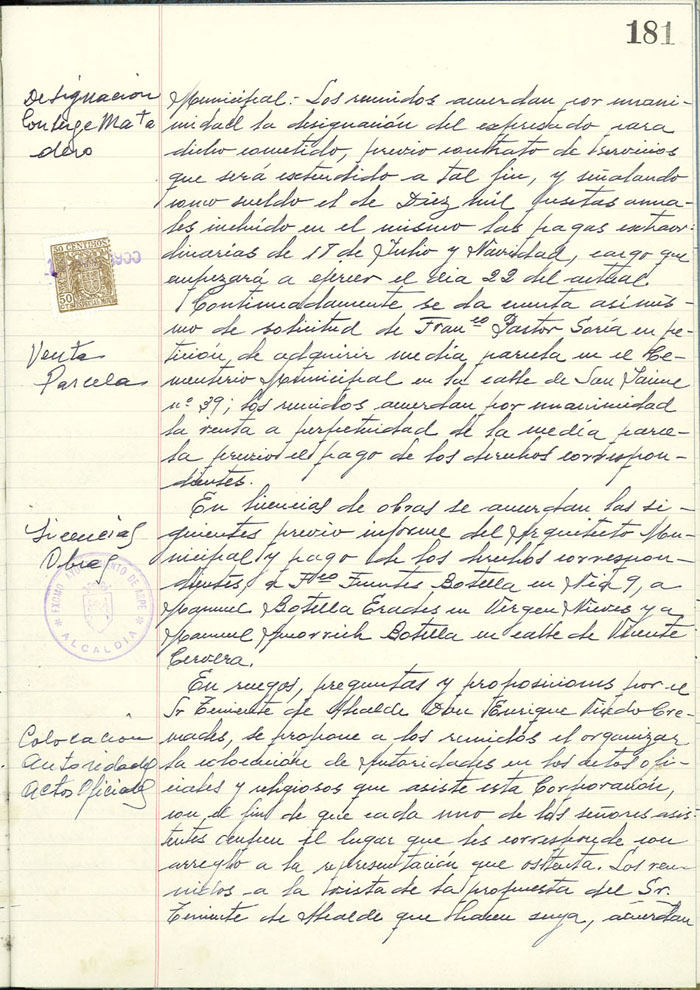 181
Designación
Conserge Mata
dero
Municipal.- Los reunidos acuerdan por unani-
midad la designación del expresado para
dicho cometido, previo contrato de servicios
que será extendido a tal fin, y señalando
como sueldo el de Diez mil pesetas anua-
les incluido en el mismo las pagas extraor-
dinarias de 18 de Julio y Navidad, cargo que
empezará a ejercer el dia 22 del actual
50 CENTIMOS
50
Continuadamente se da cuenta asimis-
mo de solicitud de Franco Pastor Soria en pe-
tición de adquirir media parcela en el Ce-
menterio Municipal en la calle de San Jaime
nº 39; los reunidos acuerdan por unanimidad
la venta a perpetuidad de la media parce-
la previo el pago de los derechos correspon-
dientes.
Venta
Parcela
En licencias de obras se acuerdan las si-
guientes previo informe del Arquitecto Mu-
nicipal y pago de los derechos correspon-
dientes, a Fco Fuentes Botella en 9, a
Manuel Botella Erades en Virgen Nieves y a
Manuel Botella en calle de Vicente
Cervera.
Licencias
Obras
EXCMO. AYUNTAMIENTO DE ASPE
ALCALDIA
En ruegos, preguntas y proposiciones por el
Sr Teniente de Alcalde Don Enrique Cre-
mades, se propone a los reunidos el organizar
la colocación de Autoridades en los actos ofi-
ciales y religiosos que asiste esta Corporación,
con el fin de que cada uno de los señores asis-
tentes ocupen el lugar que les corresponde con
arreglo a la representación que ostenta. Los reu-
nidos a la vista de la propuesta del Sr.
Teniente de Alcalde que hacen suya, acuerdan
Colocación
Autoridades
Actos Oficiales